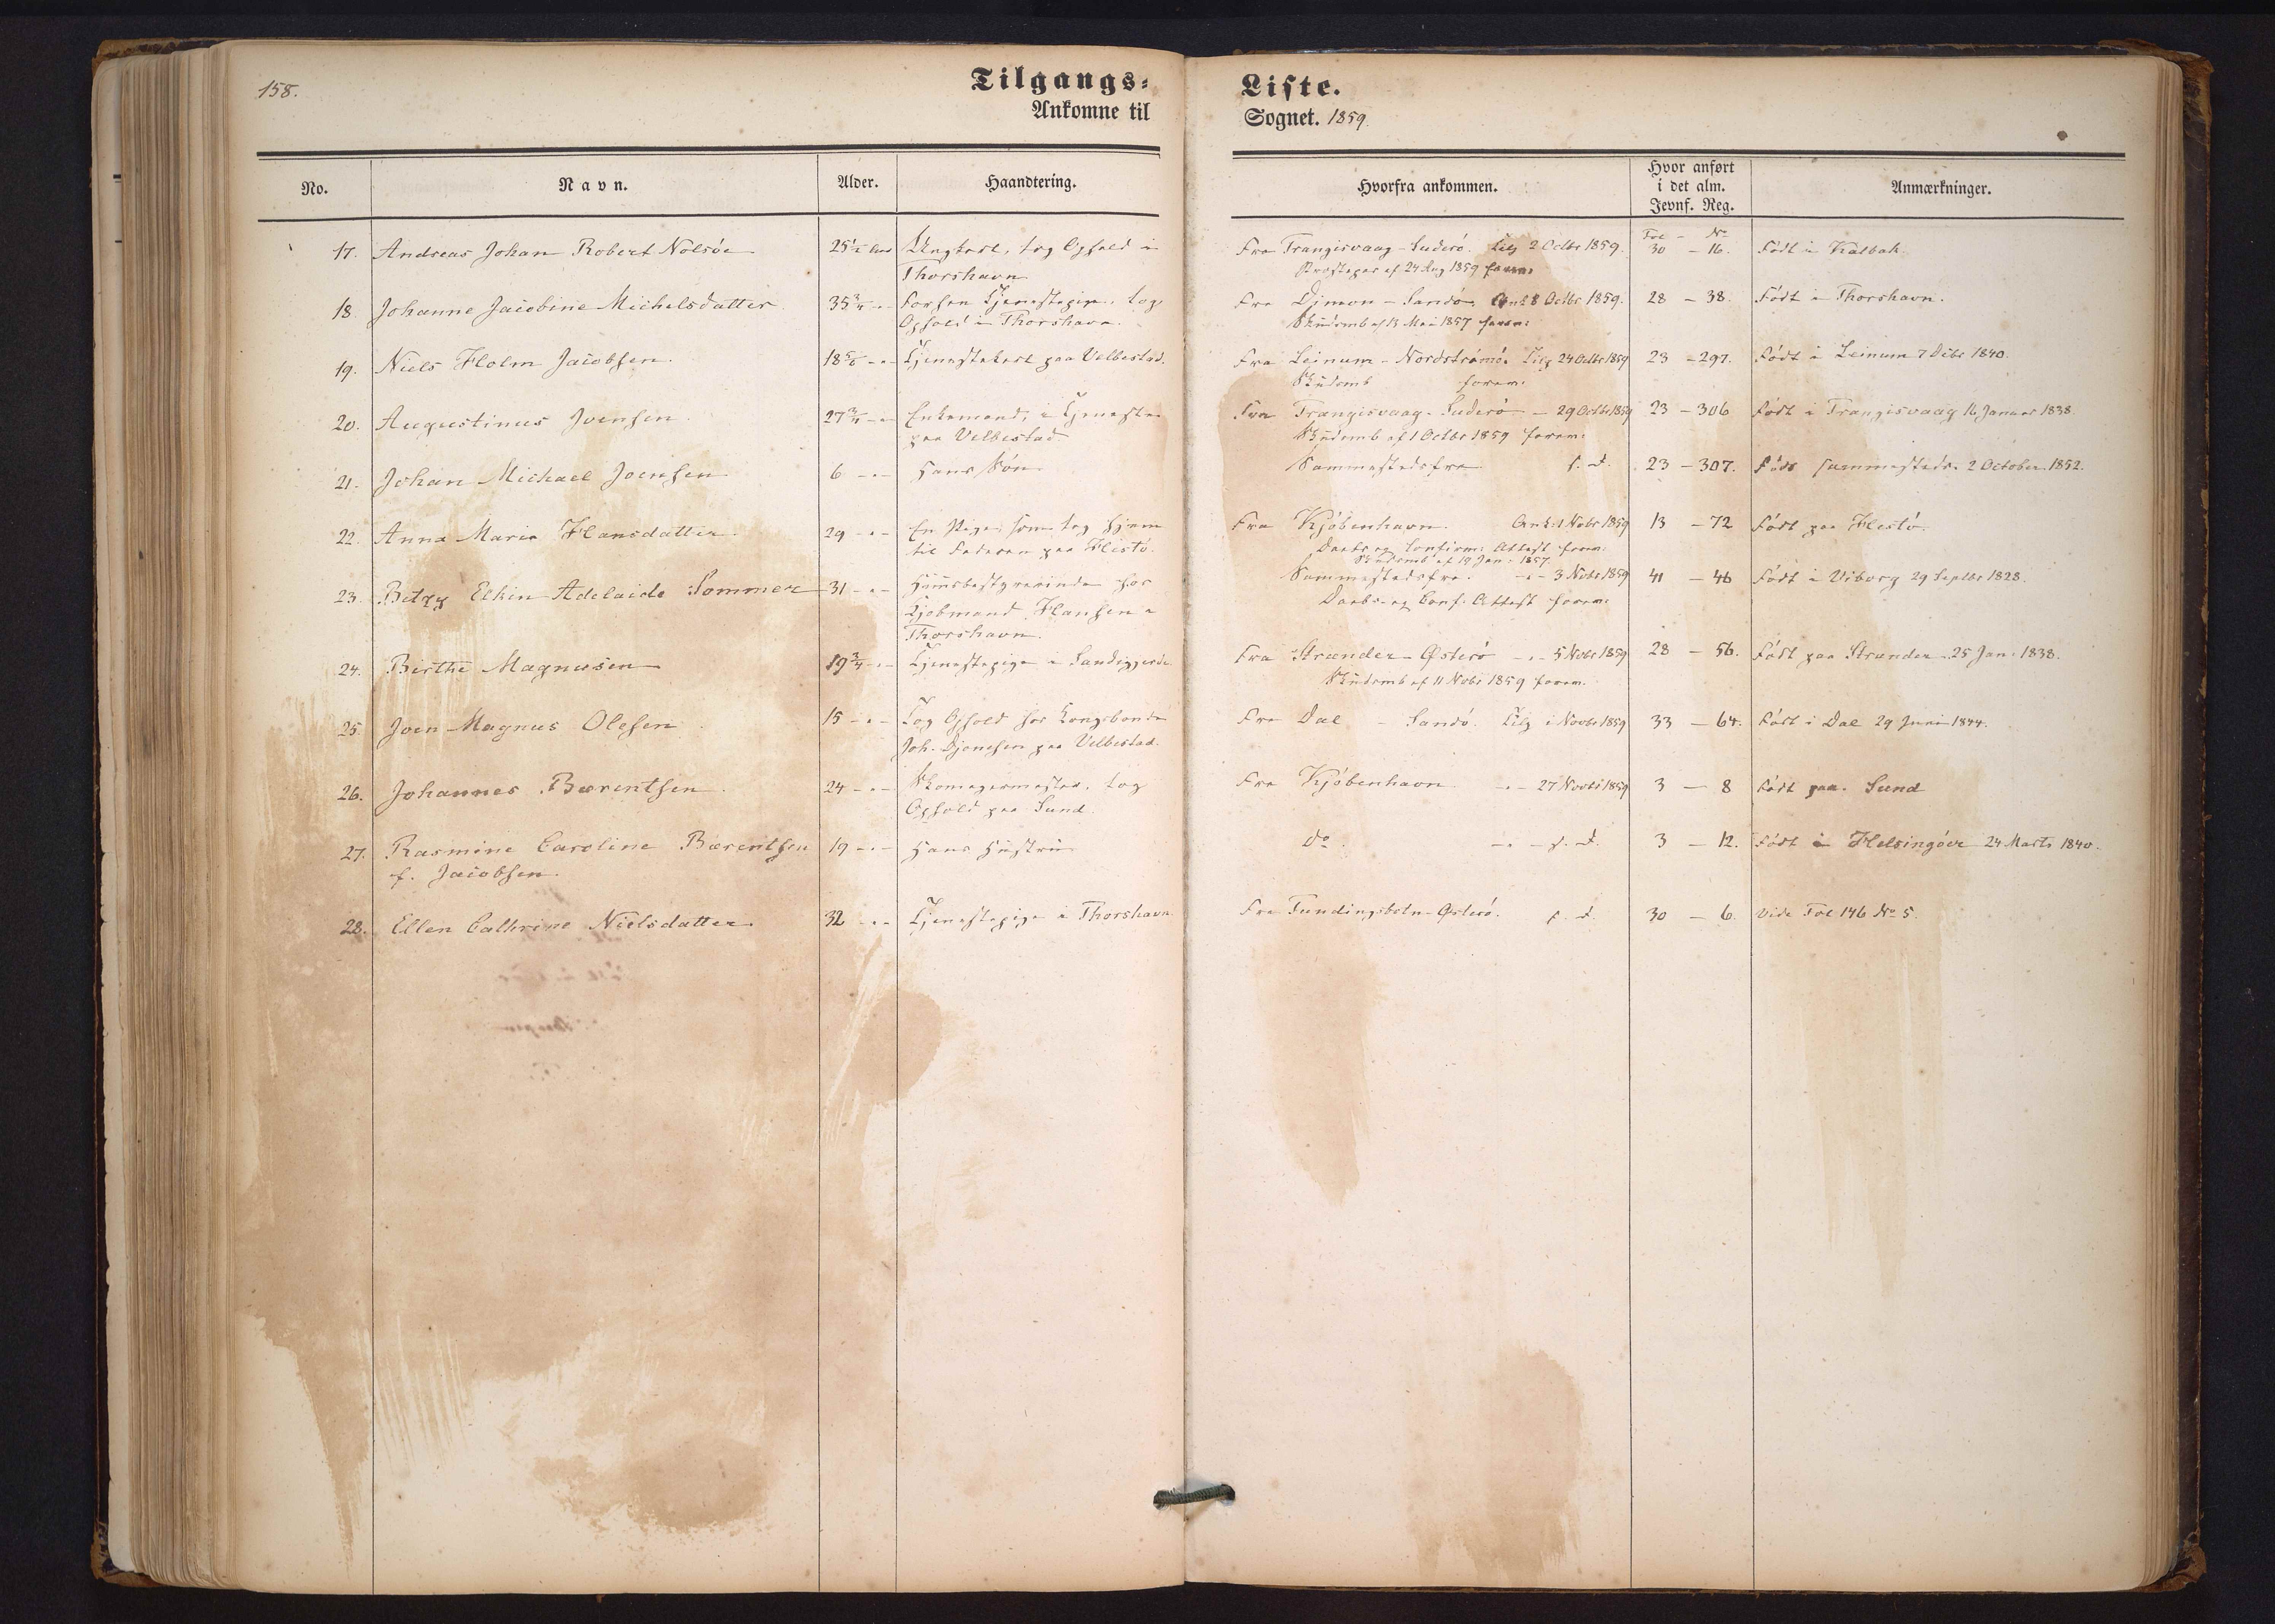 158.
Tilgangs-Liste.
Ankomne til Sognet. 1859.
No. Navn. Alder. Haandtering. Hvorfra ankommen. Hvor anført i det alm. Jevnf. Reg. Anmærkninger.
Fol – No
17. Andreas Johan Robert Nolsöe 25½ Aar Ungkarl, tog Ophold i Fra Trangisvaag – Suderö. Tilg 2 Octbr 1859. 30 – 16. Födt i Kalbak.
Thorshavn af 24 Aug 1859 forev:
18. Johanne Jacobine Michelsdatter 35¾ – " – Tjenestepige, tog Fra Dimon – Sandö. Ank 8 Octbr 1859. 28 – 38. Födt i Thorshavn.
Ophold i Thorshavn. Skudsmb af 13 Mai 1857 forev:
19. Niels Holm Jacobsen. 18 5/6 – " – Tjenestekarl paa Velbestad. Fra Leinum – Nordströmö. Tilg 24 Octbr 1859 23 – 297. Födt i Leinum 7 Decbr 1840.
Skudsmb forev:
20. Augustinus Joensen 27¾ – " – Enkemand, i Tjeneste Fra Trangisvaag – Suderö – 29 Octbr 1859 23 – 306 Födt i Trangisvaag 16 Januar 1838.
paa Velbestad. Skudsmb af 1 Octbr 1859 forev:
21. Johan Michael Joensen 6 – " – Hans Sön Sammestedsfra s. D. 23 – 307. Födt sammesteds. 2 October 1852.
22. Anna Maria Hansdatter. 29 – " – En Pige, som tog hjem Fra Kjöbenhavn. Ank: 1 Novbr 1859 13 – 72 Födt paa Hestö.
til Faderen paa Hestö. Daabs og Confirm: Attest forev:
Skudsmb af 19 Jan: 1857.
23. Betzy Elkin Adelaide Sommer 31 – " – Huusbestyrerinde hos Sammestedsfra. – " – 3 Novbr 1859 41 – 46 Födt i Viborg 29 Septbr 1828.
Kjöbmand Hansen i Daabs- og Conf. Attest forev:
Thorshavn.
24. Birthe Magnusen 19¾ – " – Tjenestepige i Sandiggerde Fra Strænder – Østerö – " – 5 Novbr 1859 28 – 56. Födt paa Strænder 25 Jan: 1838.
Skudsmb af 11 Novbr 1859 forev.
25. Joen Magnus Olesen 15 – " – Tog Ophold hos Kongsbonde Fra Dal – Sandö. Tilg i Novbr 1859 33 – 64. Födt i Dal 29 Juni 1844.
Joh. Djonesen paa Velbestad.
26. Johannes Bærentsen 24 – " – Skomagermester, tog Fra Kjöbenhavn – " – 27 Novbr 1859 3 – 8 Födt paa Sund
Ophold paa Sund.
27. Rasmine Caroline Bærentsen 19 – " – Hans Hustru do. – " – s. D. 3 – 12. Födt i Helsingöer 24 Marts 1840.
f. Jacobsen.
28. Ellen Cathrine Nielsdatter 32 – " – Tjenestepige i Thorshavn Fra Fundingsbotn – Østerö. s. D. 30 – 6. Vide Fol 146 No 5.